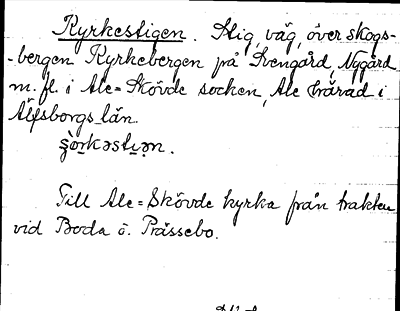 Kyrkestigen. Stig, väg, över skogs-
-bergen Kyrkebergen på Svengård, Nygård
m. fl. i Ale-Skövde socken, Ale härad i
Älfsborgs län.
Till Ale-Skövde kyrka från trakten
vid Boda o. Prässebo.